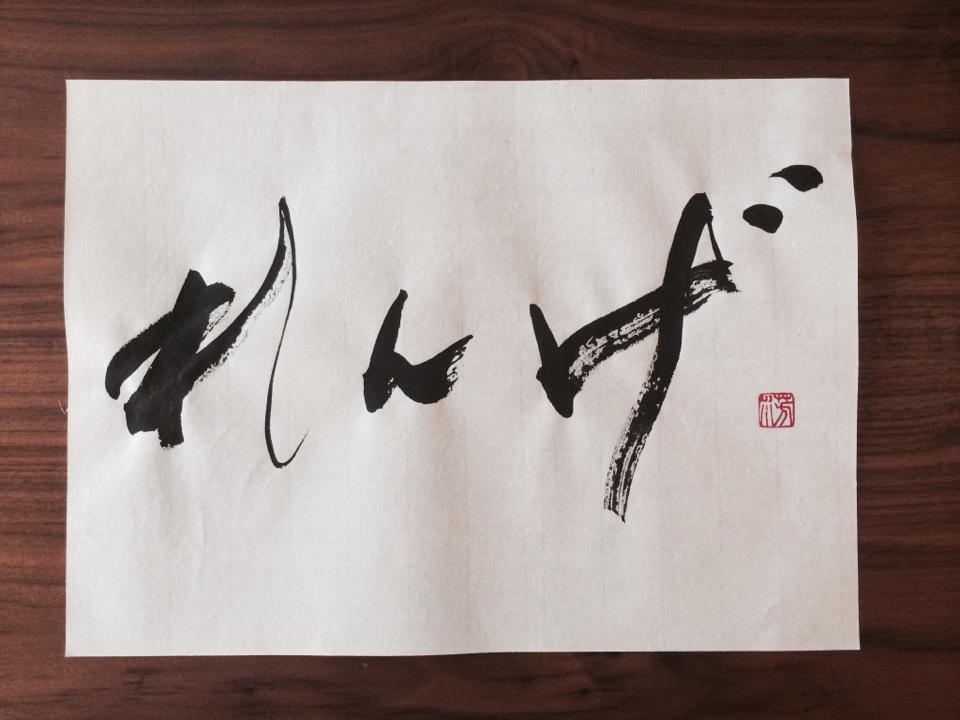 れんげ